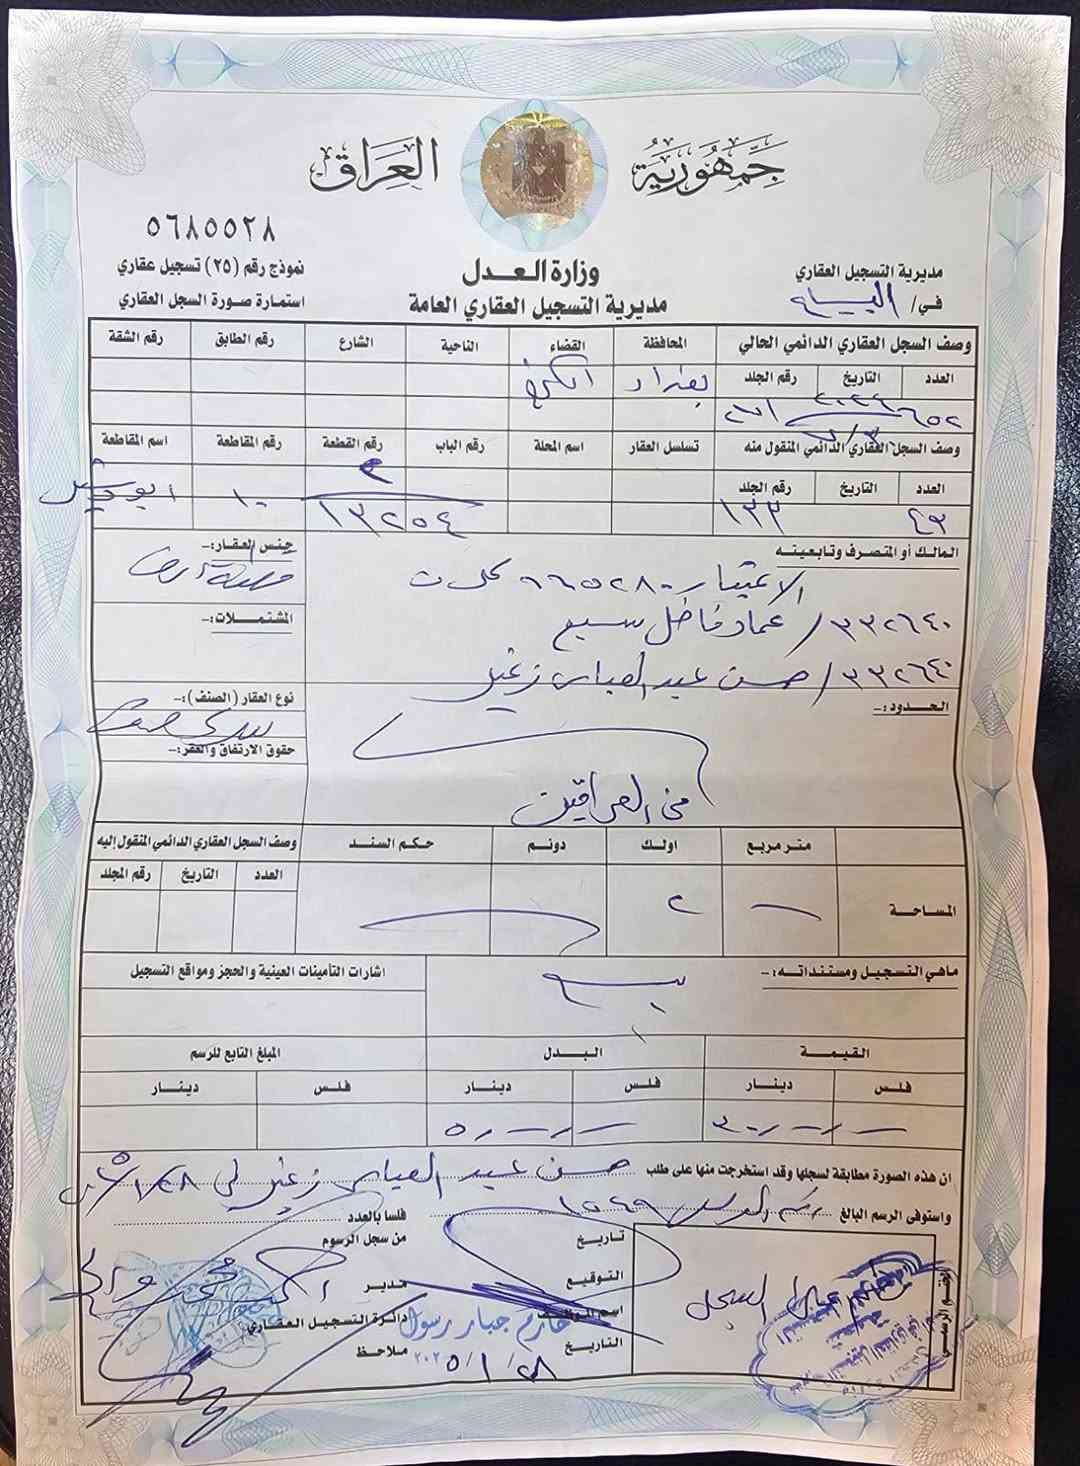 جمهورية العراق
٥٦٨٥٥٢٨
وزارة العدل
مديرية التسجيل العقاري العامة
مديرية التسجيل العقاري
في/ البياع
نموذج رقم (٢٥) تسجيل عقاري
استمارة صورة السجل العقاري
وصف السجل العقاري الدائمي الحالي المحافظة القضاء الناحية الشارع رقم الطابق رقم الشقة
العدد التاريخ رقم الجلد بغداد الكرخ
٦٥٢
وصف السجل العقاري الدائمي المنقول منه تسلسل العقار اسم المحلة رقم الباب رقم القطعة رقم المقاطعة اسم المقاطعة
العدد التاريخ رقم الجلد
٤٣ ١٣٣ ١٣٢٥٤ ١٠ ابو دشير
المالك أو المتصرف وتابعيته
جنس العقار:-
الاعتبار ٦٦٥٢٨٠
٣٣٢٦٤٠/ عماد فاضل سبع
المشتملات:-
٣٣٢٦٤٠/ حسن عبد العباس زغير
الحدود:-
نوع العقار (الصنف):-
حقوق الارتفاق والعقر:-
من العراقيين
متر مربع اولك دونم حكم السند وصف السجل العقاري الدائمي المنقول إليه
العدد التاريخ رقم المجلد
المساحة ٢
ماهي التسجيل ومستنداته:- بيع
اشارات التأمينات العينية والحجز ومواقع التسجيل
القيمة البدل المبلغ التابع للرسم
فلس دينار فلس دينار فلس دينار
ان هذه الصورة مطابقة لسجلها وقد استخرجت منها على طلب حسن عبد العباس زغير
واستوفى الرسم البالغ فلسا بالعدد
تاريخ من سجل الرسوم
التوقيع مدير
اسم الموظف حازم جبار رسول دائرة التسجيل العقاري
التاريخ ٢٠٢٥/١/٢٨ ملاحظ
الختم الرسمي
السجل